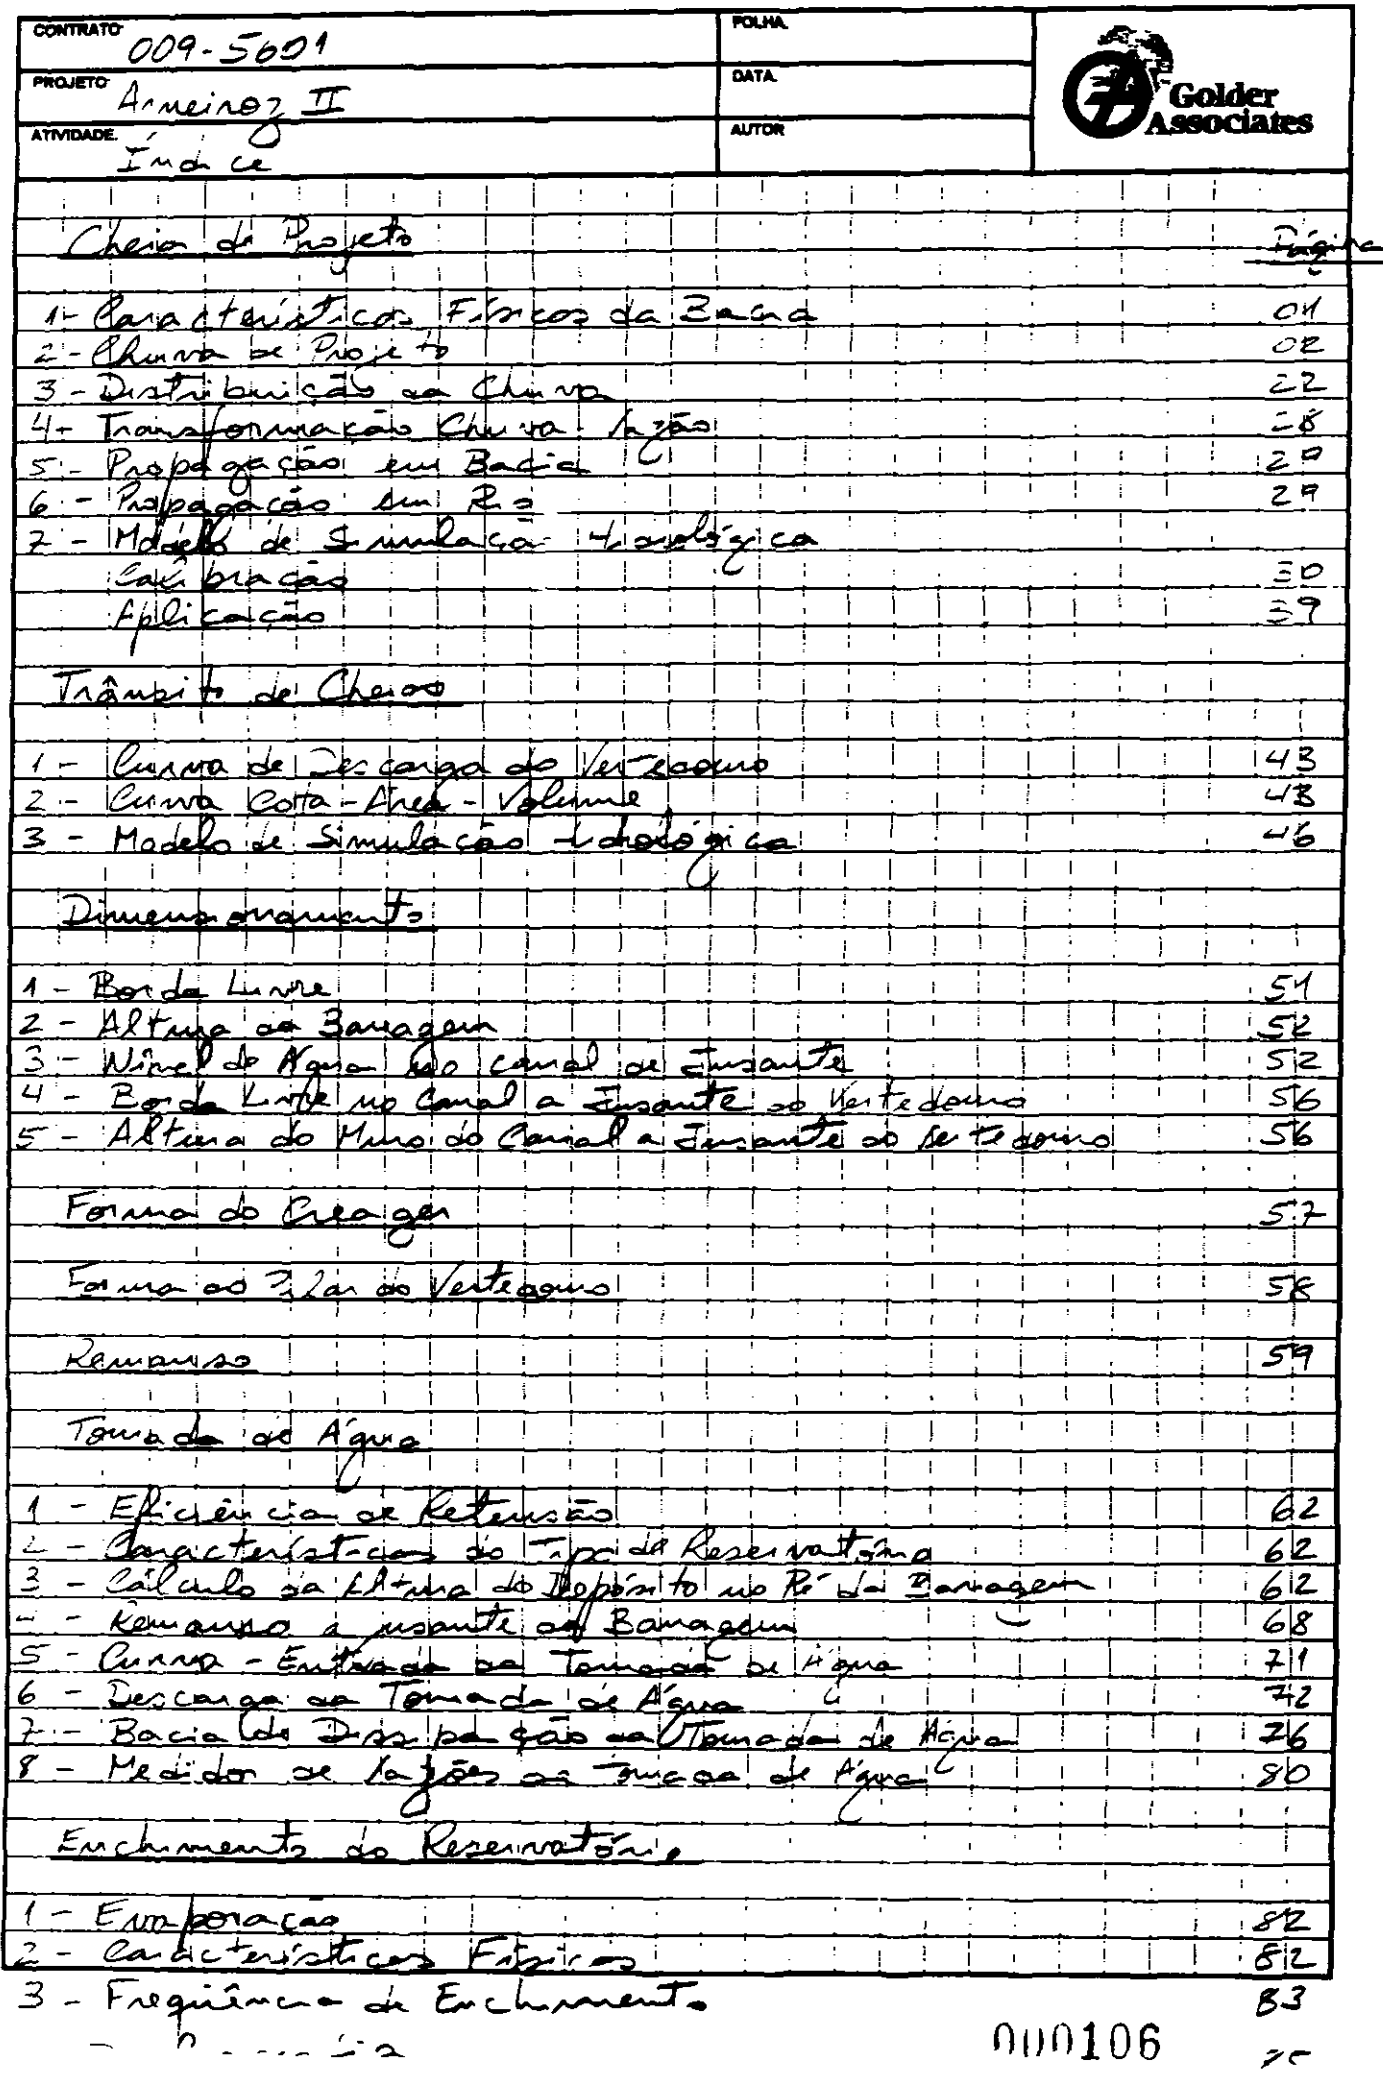 CONTRATO 009-5601
FOLHA.
PROJETO Arneiroz II
DATA.
ATIVIDADE. Índice
AUTOR
Golder
Associates
Cheia de Projeto
Página
1- Características Físicas da Bacia 01
2 - Chuva de Projeto 02
3 - Distribuição da Chuva 22
4- Transformação Chuva Vazão 28
5 - Propagação em Bacia 29
6 - Propagação em Rio 29
7 - Modelo de Simulação Hidrológica
Calibração 30
Aplicação 39
Trânsito de Cheias
1 - Curva de Descarga do Vertedouro 43
2 - Curva Cota-Área-Volume 43
3 - Modelo de Simulação Hidrológica 46
Dimensionamento
1 - Borda Livre 51
2 - Altura da Barragem 52
3 - Nível de Água no canal de Jusante 52
4 - Borda Livre no Canal a Jusante do Vertedouro 56
5 - Altura do Muro do Canal a Jusante do Vertedouro 56
Forma do Creager 57
Forma do Pilar do Vertedouro 58
Remanso 59
Tomada de Água
1 - Eficiência de Retensão 62
2 - Características do Tipo de Reservatório 62
3 - Cálculo da Altura do Depósito no Pé da Barragem 62
4 - Remanso a jusante da Barragem 68
5 - Curva - Entrada da Tomada de Água 71
6 - Descarga da Tomada de Água 72
7 - Bacia de Dissipação da Tomada de Água 76
8 - Medidor de Vazões da Tomada de Água 80
Enchimento do Reservatório
1 - Evaporação 82
2 - Características Físicas 82
3 - Freqüência de Enchimento 83
000106